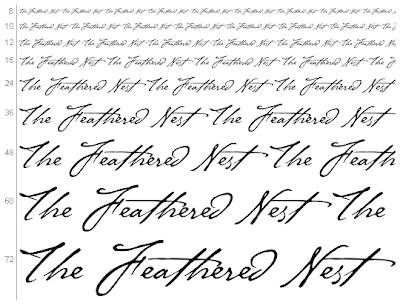 8 The Feathered Nest The Feathered Nest The Feathered Nest The Feathered Nest The Feathered Nest The Feathered Nest The Feathered Nest The Feathered Nest The Feathered Nest
10 The Feathered Nest The Feathered Nest The Feathered Nest The Feathered Nest The Feathered Nest The Feathered Nest The Feathered Nest
12 The Feathered Nest The Feathered Nest The Feathered Nest The Feathered Nest The Feathered Nest The Feathered Nest
16 The Feathered Nest The Feathered Nest The Feathered Nest The Feathered Nest The
24 The Feathered Nest The Feathered Nest The Feathered Nest
36 The Feathered Nest The Feathered Nest
48 The Feathered Nest The Feath
60 The Feathered Nest The
72 The Feathered Nest